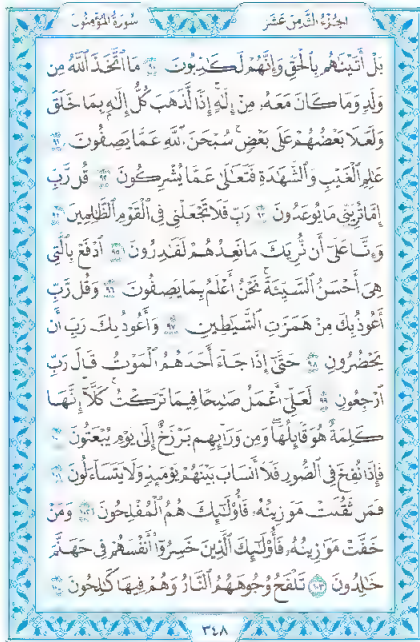 الجزء الثامن عشر سورة المؤمنون
بَلْ أَتَيْنَٰهُم بِٱلْحَقِّ وَإِنَّهُمْ لَكَٰذِبُونَ ٩٠ مَا ٱتَّخَذَ ٱللَّهُ مِن
وَلَدٍ وَمَا كَانَ مَعَهُۥ مِنْ إِلَٰهٍ ۚ إِذًا لَّذَهَبَ كُلُّ إِلَٰهٍۭ بِمَا خَلَقَ
وَلَعَلَا بَعْضُهُمْ عَلَىٰ بَعْضٍ ۚ سُبْحَٰنَ ٱللَّهِ عَمَّا يَصِفُونَ ٩١
عَٰلِمِ ٱلْغَيْبِ وَٱلشَّهَٰدَةِ فَتَعَٰلَىٰ عَمَّا يُشْرِكُونَ ٩٢ قُل رَّبِّ
إِمَّا تُرِيَنِّى مَا يُوعَدُونَ ٩٣ رَبِّ فَلَا تَجْعَلْنِى فِى ٱلْقَوْمِ ٱلظَّٰلِمِينَ ٩٤
وَإِنَّا عَلَىٰٓ أَن نُّرِيَكَ مَا نَعِدُهُمْ لَقَٰدِرُونَ ٩٥ ٱدْفَعْ بِٱلَّتِى
هِىَ أَحْسَنُ ٱلسَّيِّئَةَ ۚ نَحْنُ أَعْلَمُ بِمَا يَصِفُونَ ٩٦ وَقُل رَّبِّ
أَعُوذُ بِكَ مِنْ هَمَزَٰتِ ٱلشَّيَٰطِينِ ٩٧ وَأَعُوذُ بِكَ رَبِّ أَن
يَحْضُرُونِ ٩٨ حَتَّىٰٓ إِذَا جَآءَ أَحَدَهُمُ ٱلْمَوْتُ قَالَ رَبِّ
ٱرْجِعُونِ ٩٩ لَعَلِّىٓ أَعْمَلُ صَٰلِحًا فِيمَا تَرَكْتُ ۚ كَلَّآ ۚ إِنَّهَا
كَلِمَةٌ هُوَ قَآئِلُهَا ۖ وَمِن وَرَآئِهِم بَرْزَخٌ إِلَىٰ يَوْمِ يُبْعَثُونَ ١٠٠
فَإِذَا نُفِخَ فِى ٱلصُّورِ فَلَآ أَنسَابَ بَيْنَهُمْ يَوْمَئِذٍ وَلَا يَتَسَآءَلُونَ ١٠١
فَمَن ثَقُلَتْ مَوَٰزِينُهُۥ فَأُو۟لَٰٓئِكَ هُمُ ٱلْمُفْلِحُونَ ١٠٢ وَمَنْ
خَفَّتْ مَوَٰزِينُهُۥ فَأُو۟لَٰٓئِكَ ٱلَّذِينَ خَسِرُوٓا۟ أَنفُسَهُمْ فِى جَهَنَّمَ
خَٰلِدُونَ ١٠٣ تَلْفَحُ وُجُوهَهُمُ ٱلنَّارُ وَهُمْ فِيهَا كَٰلِحُونَ ١٠٤
٣٤٨